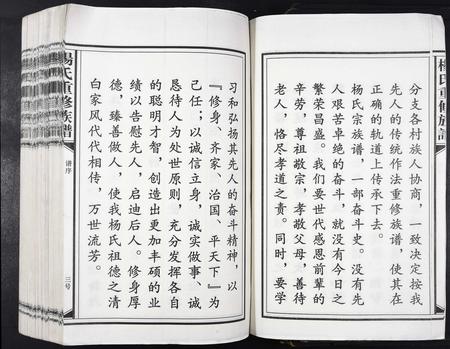 杨氏重修族谱
分支各村族人协商，一致决定按我
先人的传统作法重修族谱，使其在
正确的轨道上传承下去。
杨氏宗族谱，一部奋斗史。没有先
人艰苦卓绝的奋斗，就没有今日之
繁荣昌盛。我们要世代感恩前辈的
辛劳，尊祖敬宗，孝敬父母，善待
老人，恪尽孝道之责。同时，要学
习和弘扬其先人的奋斗精神，以
『修身、齐家、治国、平天下』为
己任；以诚信立身，诚实做事、诚
恳待人为处世原则，充分发挥各自
的聪明才智，创造出更加丰硕的业
绩以告慰先人，启迪后人。修身厚
德，臻善做人，使我杨氏祖德之清
白家风代代相传，万世流芳。
杨氏重修族谱
谱序
三号